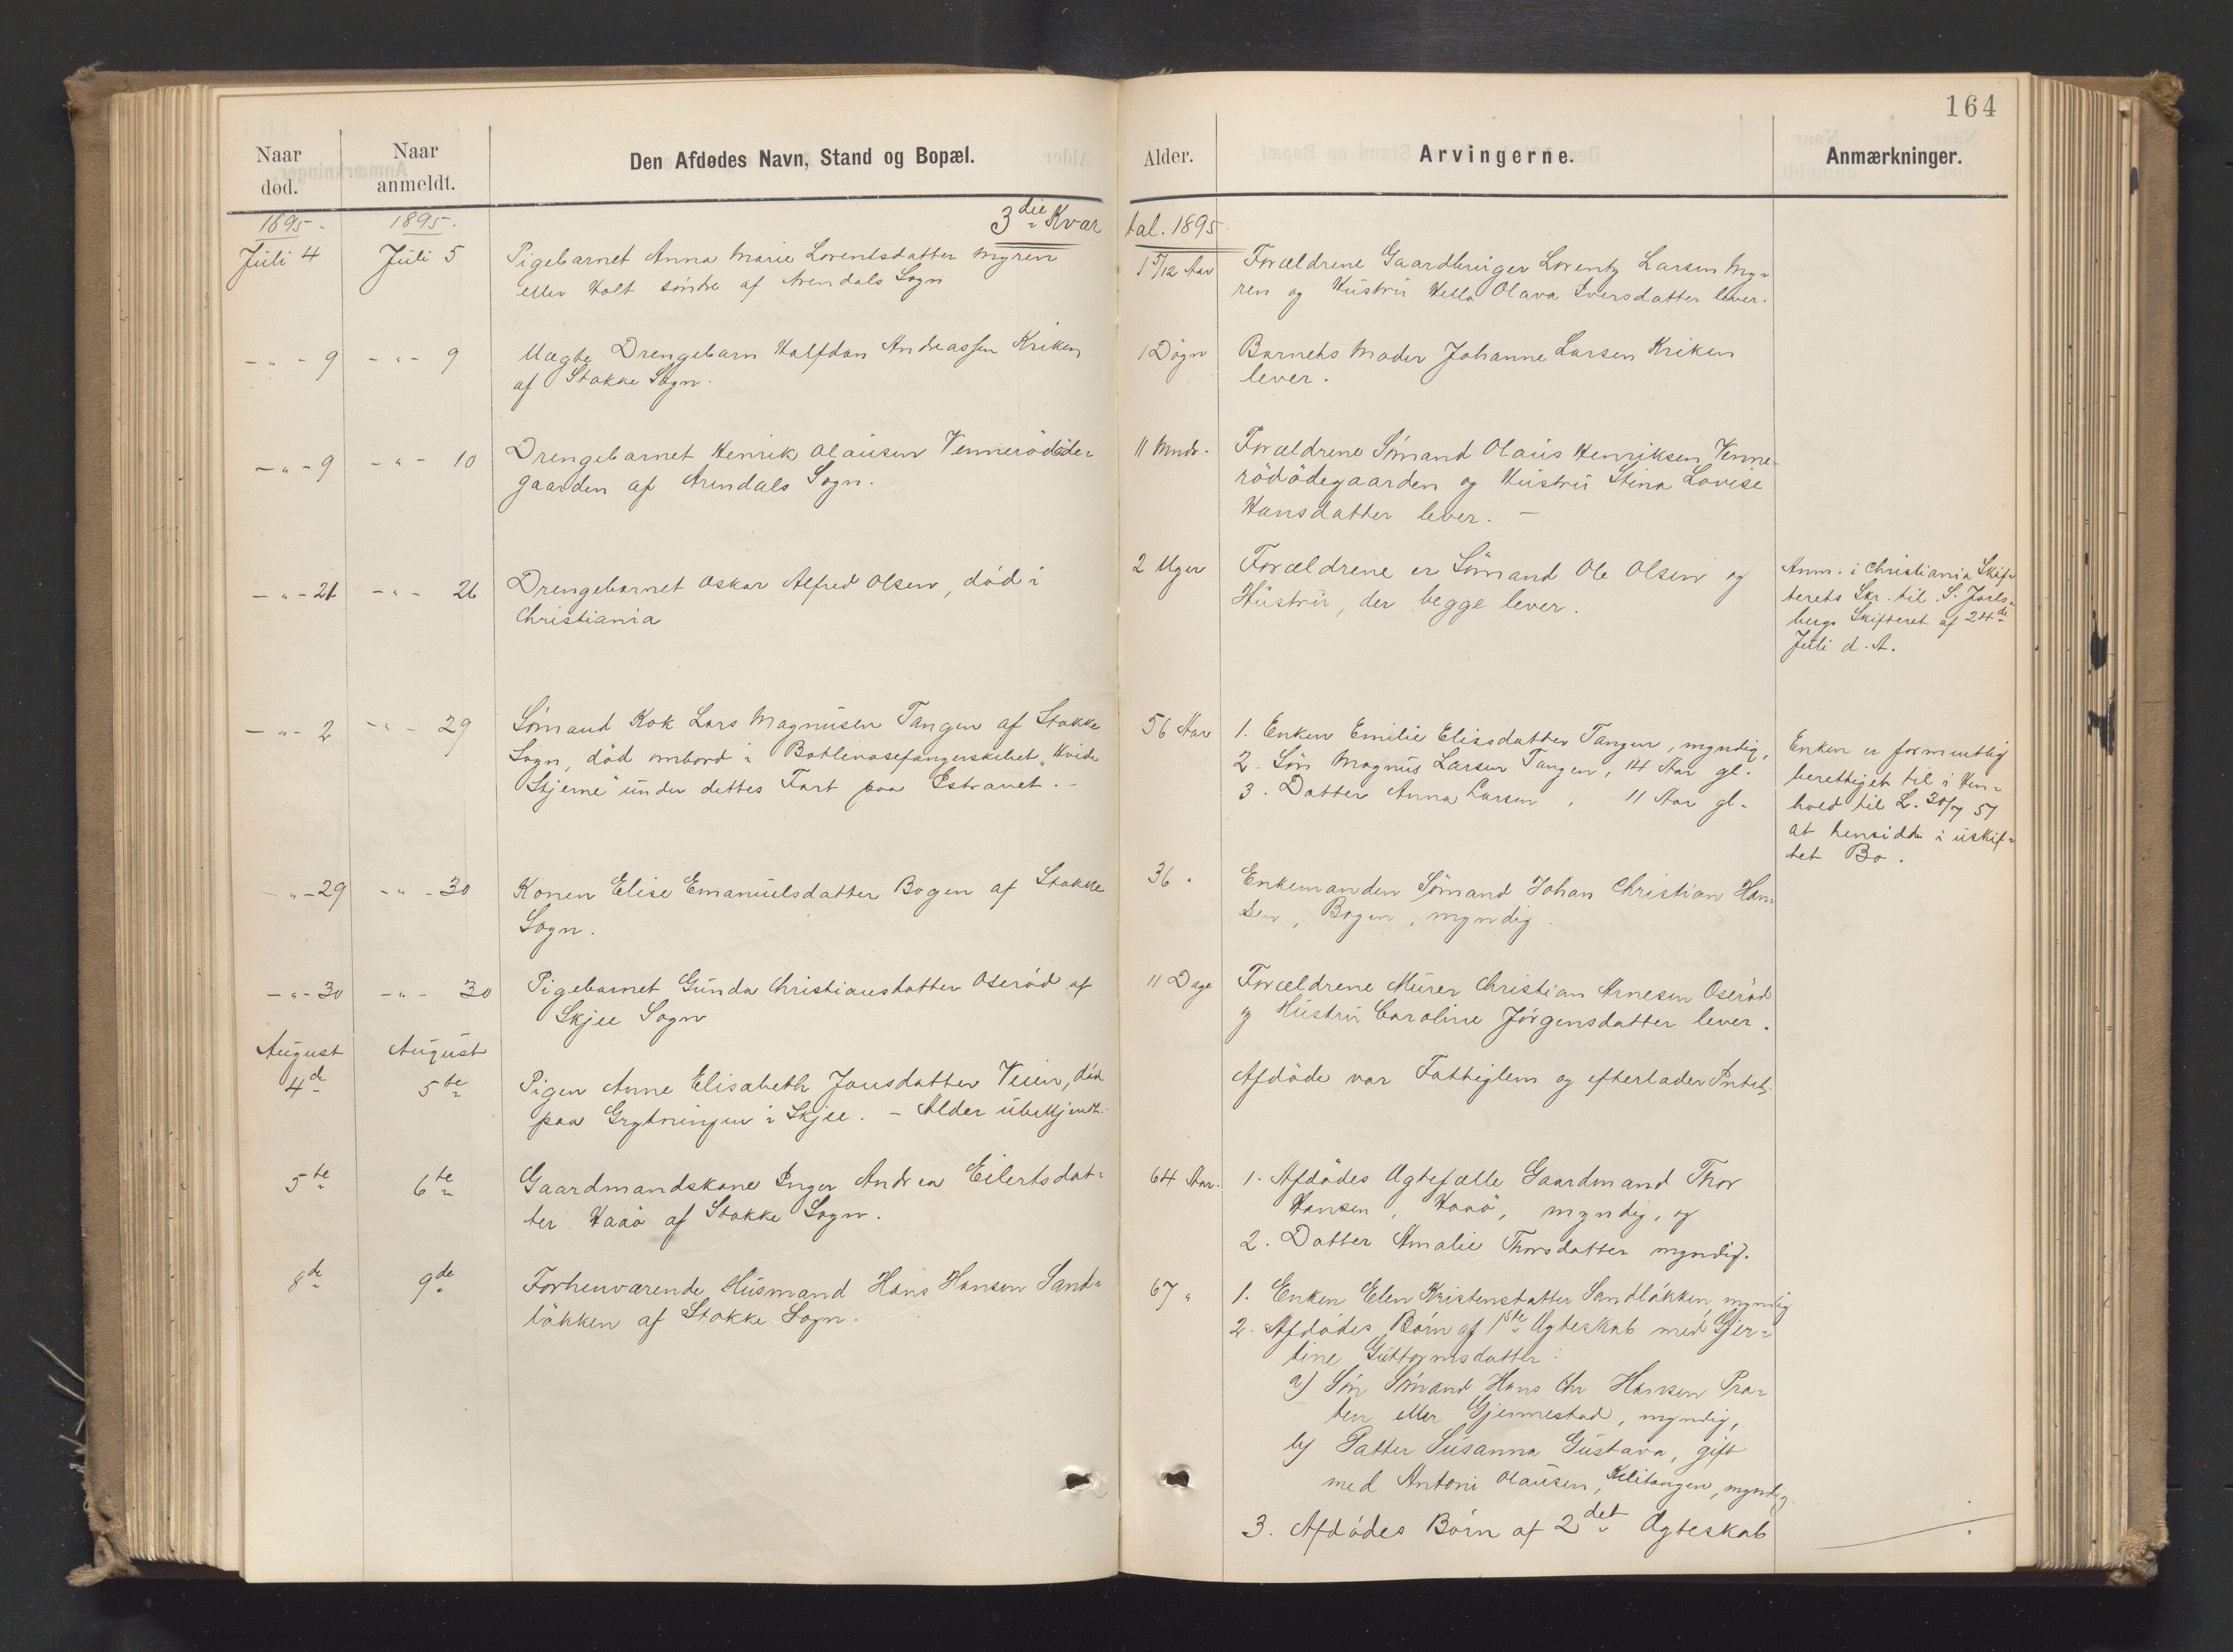 164
Naar
død.
Naar
anmeldt.
Den Afdødes Navn, Stand og Bopæl.
Alder.
Arvingerne.
Anmærkninger.
3die Kvar
tal. 1895.
1895.
1895.
Juli 4
Juli 5
Pigebarnet Anna Marie Lorentsdatter Myren
eller Holt søndre af Arendals Sogn
1 5/12 Aar
Forældrene Gaardbruger Lorentz Larsen My-
ren og Hustru Hella Olava Iversdatter lever.
- " - 9
- " - 9
Uægte Drengebarn Halfdan Andreassen Kriken
af Stokke Sogn.
1 Døgn
Barnets Moder Johanne Larsen Kriken
lever.
- " - 9
- " - 10
Drengebarnet Henrik Olausen Vennerødøde-
gaarden af Arendals Sogn.
11 Mndr.
Forældrene Sømand Olaus Henriksen Venne-
rødødegaarden og Hustru Stina Lovise
Hansdatter lever. -
- " - 21
- " - 26
Drengebarnet Oskar Alfred Olsen, død i
Christiania
2 Uger
Forældrene er Sømand Ole Olsen og
Hustru, der begge lever.
Anm. i Christiania Skif-
terets Skr. til S. Jarls-
bergs Skifteret af 24de
Juli d. A.
- " - 2
- " - 29
Sømand Kok Lars Magnusen Tangen af Stokke
Sogn, død ombord i Bottlenosefangerskibet "Hvide
Stjerne" under dettes Fart paa Ishavet. -
56 Aar
1. Enken Emilie Eliasdatter Tangen, myndig,
2. Søn Magnus Larsen Tangen, 14 Aar gl.
3. Datter Anna Larsen, 11 Aar gl.
Enken er formentlig
berettiget til i Hen-
hold til L. 30/7 51
at hensidde i uskif-
tet Bo.
- " - 29
- " - 30
Konen Elise Emanuelsdatter Bogen af Stokke
Sogn.
36 "
Enkemanden Sømand Johan Christian Han-
sen, Bogen, myndig.
- " - 30
- " - 30
Pigebarnet Gunda Christiansdatter Oserød af
Skjee Sogn
11 Dage
Forældrene Murer Christian Arnesen Oserød
og Hustru Caroline Jørgensdatter lever.
August
4de
August
5te
Pigen Anne Elisabeth Jonsdatter Veien, død
paa Grytningen i Skjee. - Alder ubekjendt.
Afdøde var Fattiglem og efterlader Intet.
5te
6te
Gaardmandskone Inger Andrea Eilertsdat-
ter Haaø af Stokke Sogn.
64 Aar.
1. Afdødes Ægtefælle Gaardmand Thor
Hansen, Haaø, myndig, og
2. Datter Amalie Thorsdatter myndig.
8de
9de
Forhenværende Husmand Hans Hansen Sand-
løkken af Stokke Sogn.
67 "
1. Enken Elen Kristensdatter Sandløkken, myndig
2. Afdødes Børn af 1ste Ægteskab med Gjer-
tine Guttormsdatter:
a) Søn Sømand Hans Chr Hansen Pra-
ten eller Gjennestad, myndig,
b) Datter Susanna Gustava, gift
med Antoni Olausen, Kilitangen, myndig
3. Afdødes Børn af 2det Ægteskab